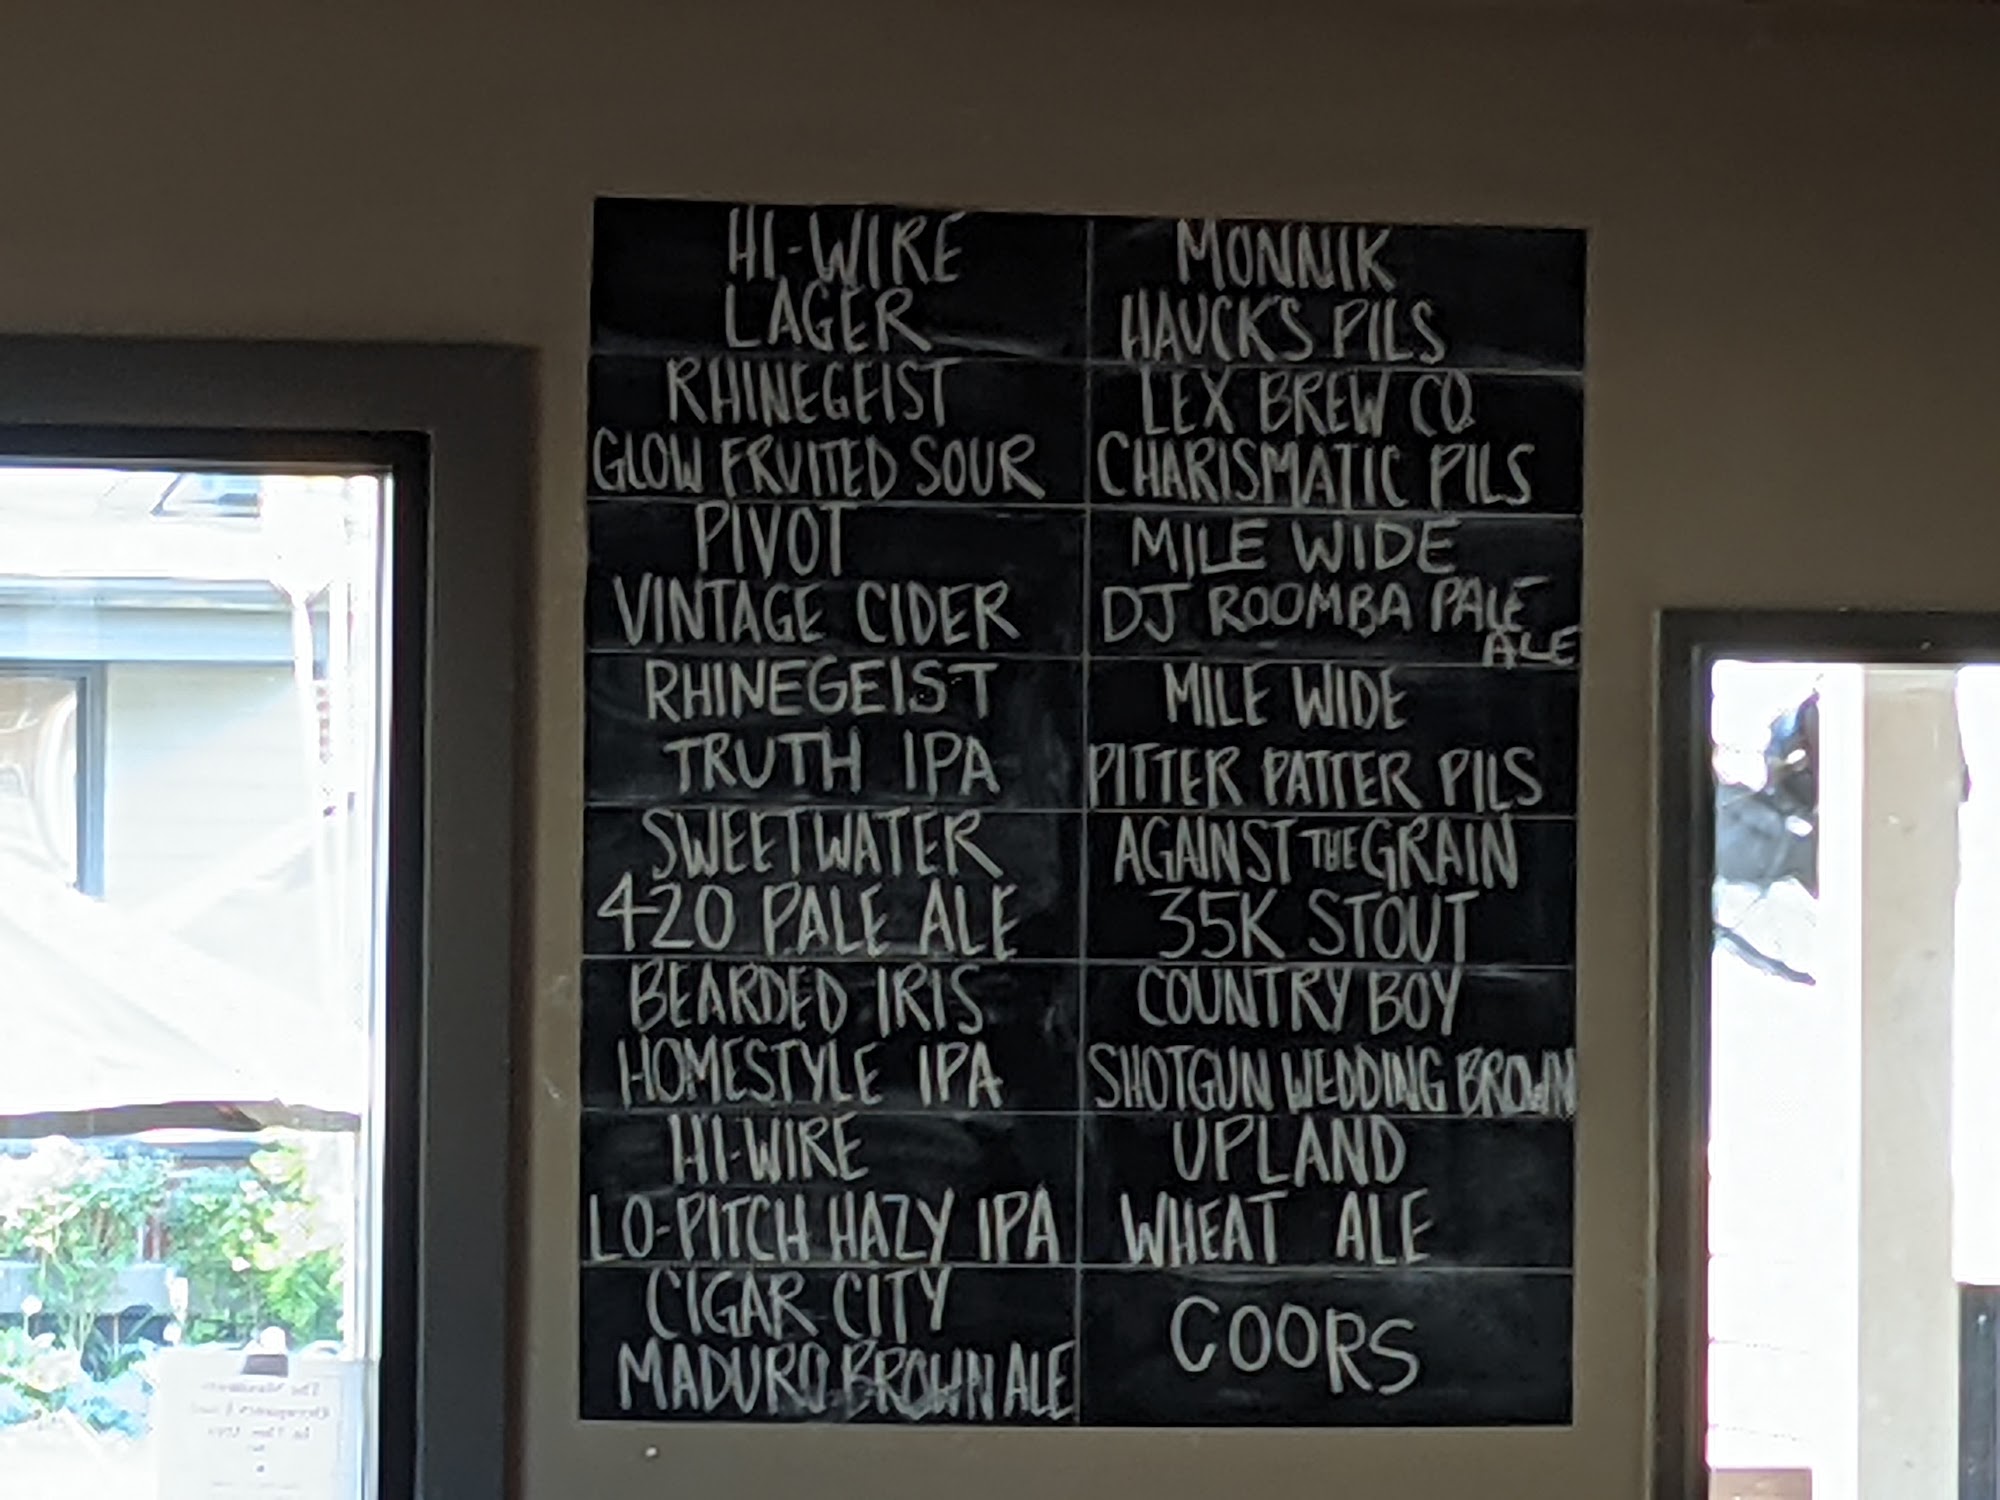 HI-WIRE
LAGER
RHINEGEIST
GLOW FRUITED SOUR
PIVOT
VINTAGE CIDER
RHINEGEIST
TRUTH IPA
SWEETWATER
420 PALE ALE
BEARDED IRIS
HOMESTYLE IPA
HI-WIRE
LO-PITCH HAZY IPA
CIGAR CITY
MADURO BROWN ALE
MONNIK
HAUCK'S PILS
LEX BREW CO.
CHARISMATIC PILS
MILE WIDE
DJ ROOMBA PALE
ALE
MILE WIDE
PITTER PATTER PILS
AGAINST THE GRAIN
35K STOUT
COUNTRY BOY
SHOTGUN WEDDING BROWN
UPLAND
WHEAT ALE
COORS